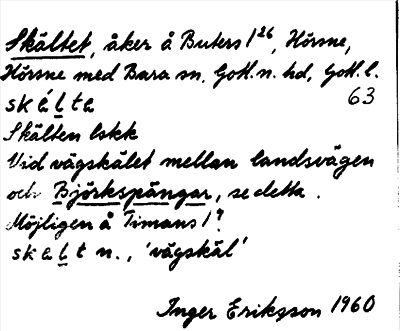 Skältet, åker å Buters 1²⁶, Hörsne,
Hörsne med Bara sn. Gotl. n. hd, Gotl. l.
skálta 63
Skälten lskk
Vid vägskälet mellan landsvägen
och Björkspängar, se detta.
Möjligen å Timans 1?
skalt n., 'vägskäl'
Inger Eriksson 1960